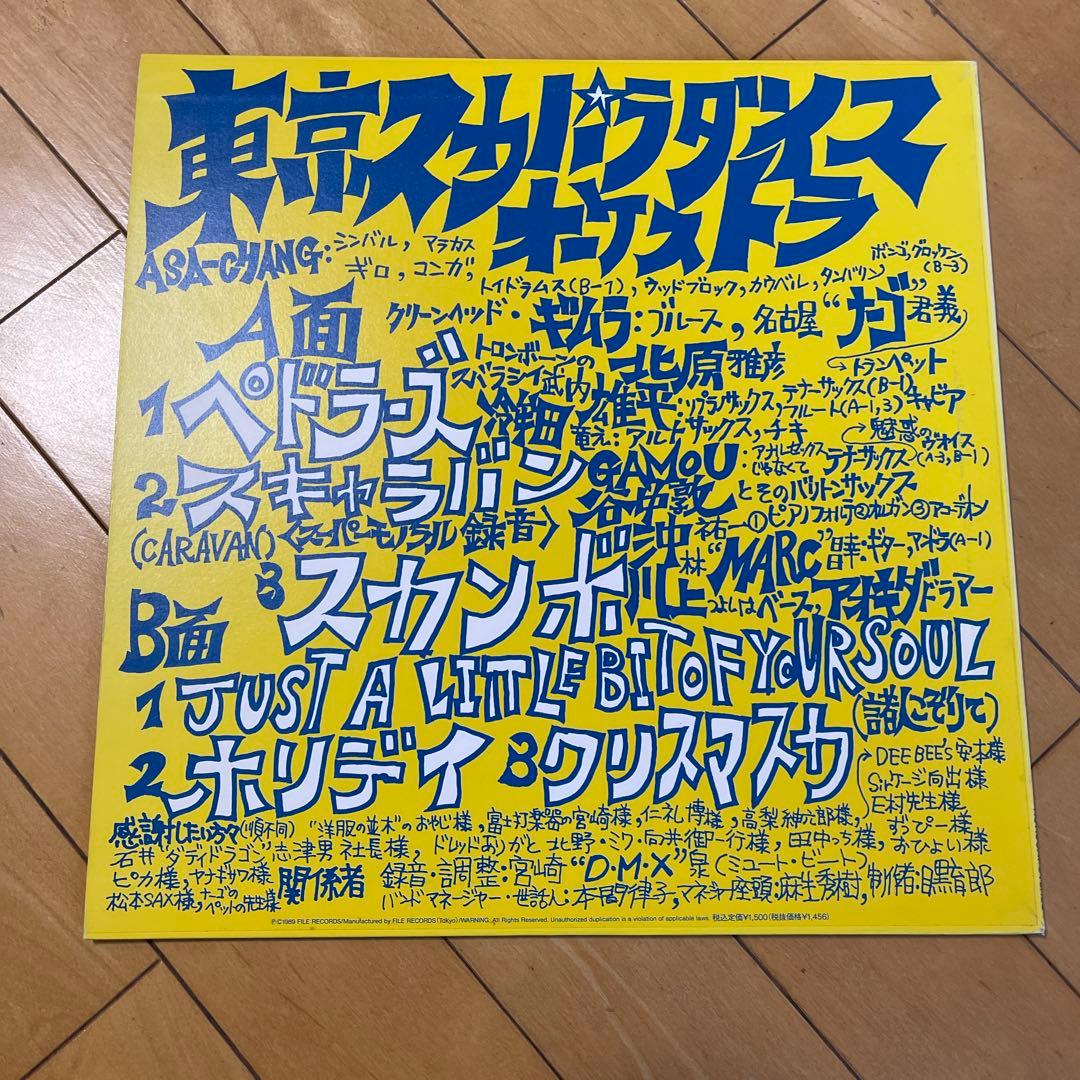 東京スカパラダイス
オーケストラ
ASA-CHANG:シンバル, マラカス
ギロ, コンガ,
トイドラムス(B-1), ウッドブロック, カウベル, タンバリン
ボンゴ, グロッケン
(B-3)
A面
クリーンヘッド・ギムラ:ブルース, 名古屋"ナーゴ"君義
→トランペット
トロンボーンの北原雅彦
1 ペドラーズ
スバラシイ武内雄平:ソプラノサックス, テナーサックス(B-1)
フルート(A-1,3)キャビア
冷牟田竜之:アルトサックス, チキ
→魅惑のヴォイス
(A-3, B-1)
2 スキャラバン
(CARAVAN)〈スーパーモノラル録音〉
GAMOU:アナルセックスじゃなくてテナーサックス
谷中敦とそのバリトンサックス
沖祐一①ピアノフォルテ②オルガン③アコーデオン
林"MARC"昌幸・ギター, (A-1)
3 スカンボ
川上つよしはベース, アオキダドラマー
B面
1 JUST A LITTLE BIT OF YOUR SOUL
2 ホリデイ 3 クリスマスカ
(諸人こぞりて)
DEE BEE's 安本様
Sirケージ向出様
E村先生様
ずっぴー様
おひょい様
感謝したい方々(順不同) "洋服の並木"のおやじ様, 富士打楽器の宮崎様, 仁礼博様, 高梨紳六郎様,
石井"ダディドラゴン"志津男社長様, ドレッドありがと北野・ミワ・向井御一行様, 田中っち様,
ピカ様, ヤナギサワ様
松本SAX様, ナーゴのペットの先生様
関係者 録音・調整:宮崎"D・M・X"泉(ミュート・ビート)
バンドマネージャー・世話人:本間律子, マネジャー座頭:麻生秀樹, 制作:
℗©1989 FILE RECORDS/Manufactured by FILE RECORDS (Tokyo)/WARNING: All Rights Reserved. Unauthorized duplication is a violation of applicable laws. 税込定価¥1,500(税抜価格¥1,456)